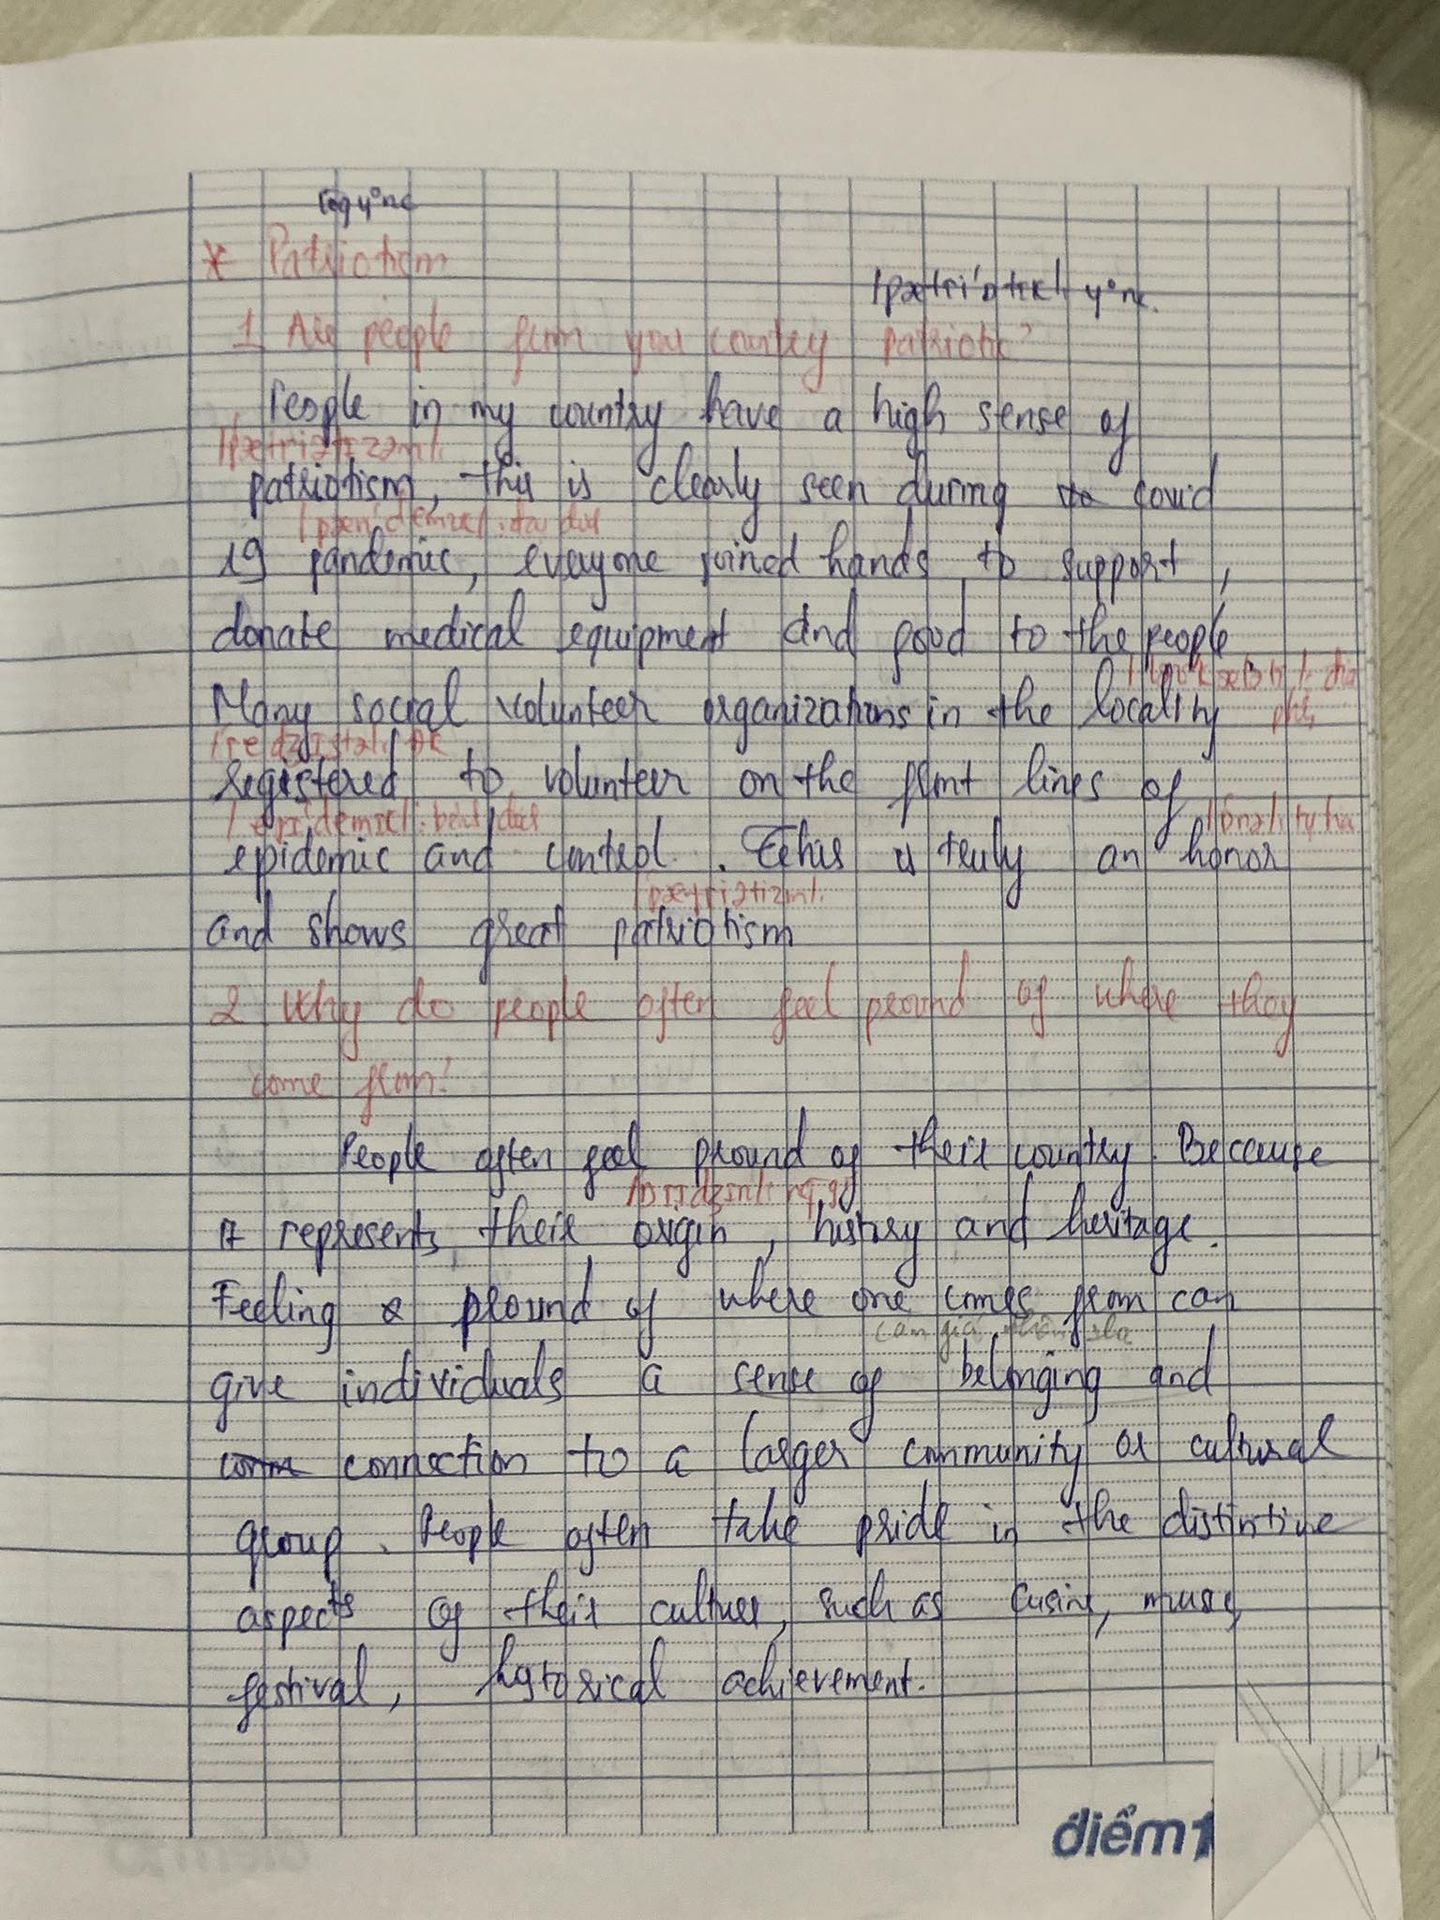 * Patriotism
1 Are people from you country patriotic?
People in my country have a high sense of
patriotism, this is clearly seen during covid
19 pandemic, everyone joined hands to support,
donate medical equipment and food to the people
Many social volunteer organizations in the locality
registered to volunteer on the front lines of
epidemic and control. This is truly an honor
and shows great patriotism
2 Why do people often feel pround of where they
come from?
People often feel pround of their country. Because
it represents their origin, history and heritage.
Feeling pround of where one comes from can
give individuals a sense of belonging and
connection to a larger community or cultural
group. People often take pride in the distintive
aspects of their culture, such as cusine, music,
festival, hytorical achievement.
điểm